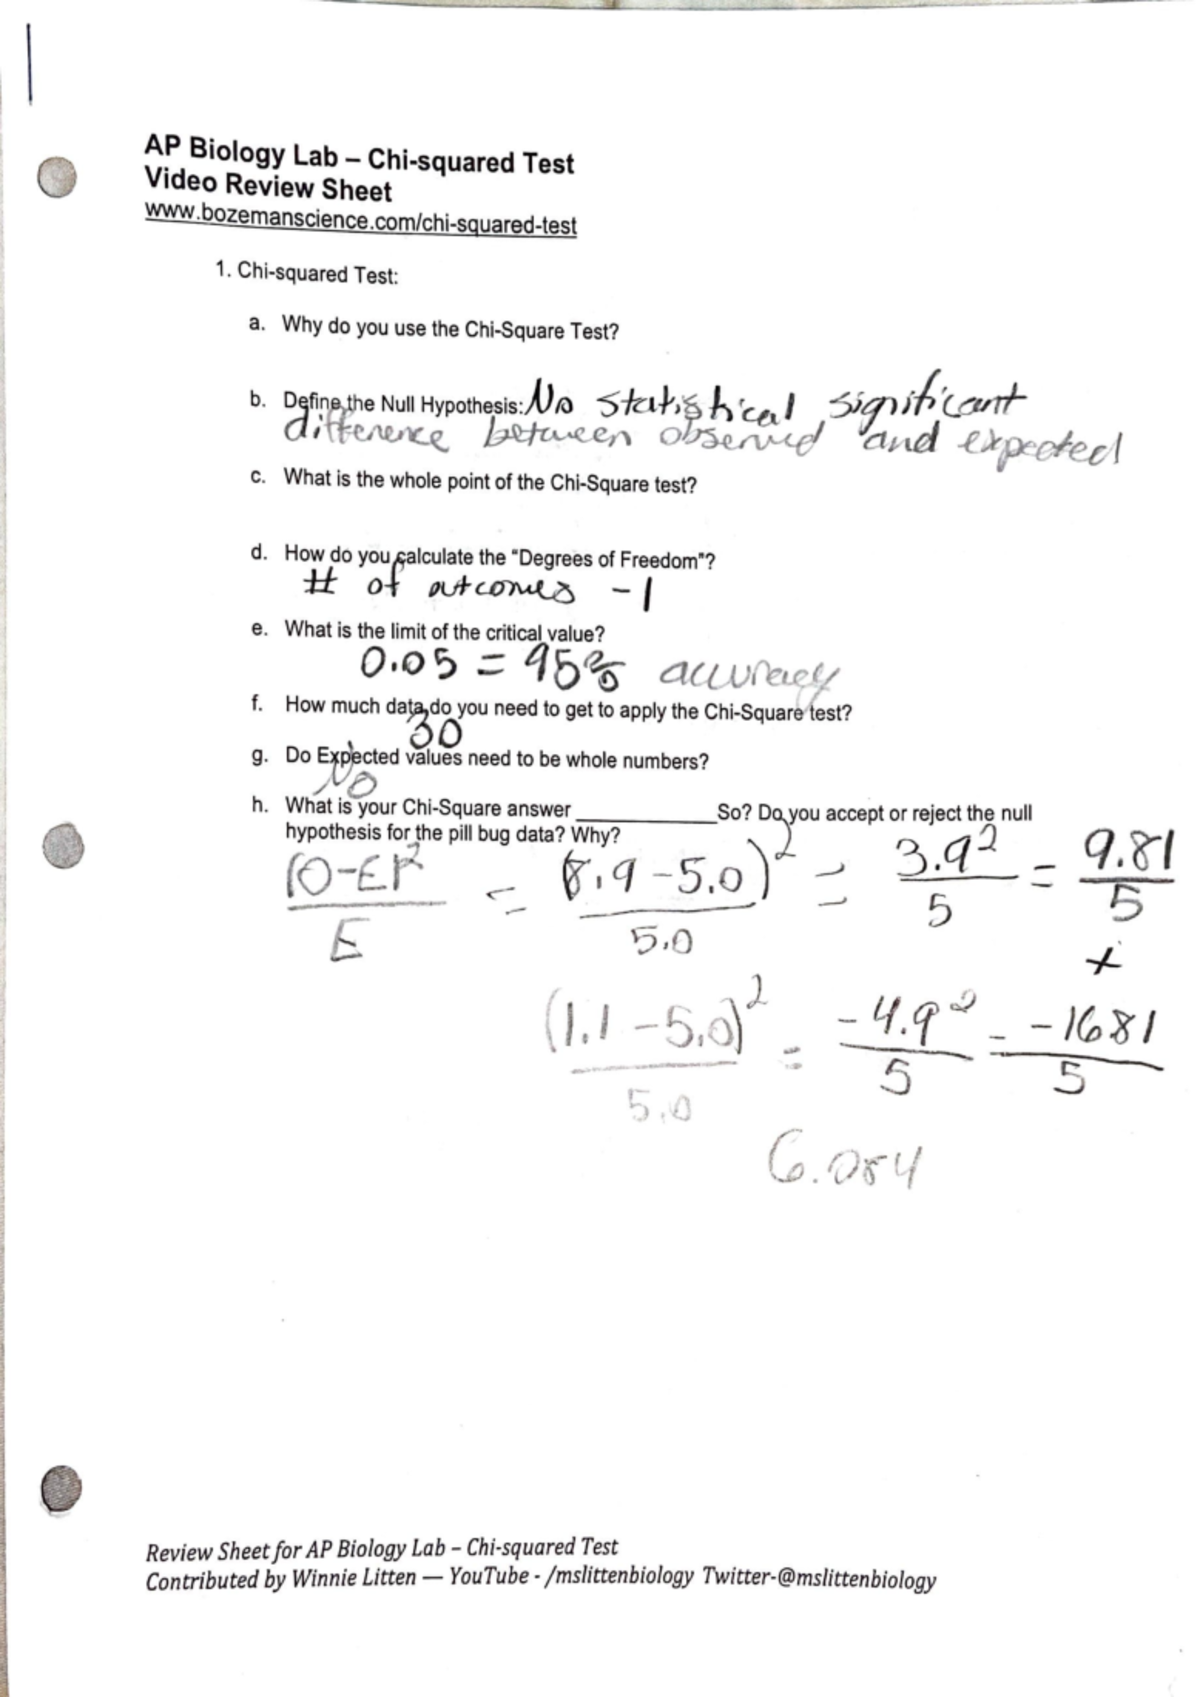 AP Biology Lab – Chi-squared Test
Video Review Sheet
www.bozemanscience.com/chi-squared-test
1. Chi-squared Test:
a. Why do you use the Chi-Square Test?
b. Define the Null Hypothesis: No statistical significant
difference between observed and expected
c. What is the whole point of the Chi-Square test?
d. How do you calculate the "Degrees of Freedom"?
# of outcomes -1
e. What is the limit of the critical value?
0.05 = 95% accuracy
f. How much data do you need to get to apply the Chi-Square test?
30
g. Do Expected values need to be whole numbers?
No
h. What is your Chi-Square answer ____________So? Do you accept or reject the null
hypothesis for the pill bug data? Why?
(O-E)² = (8.9-5.0)² = 3.9² = 9.81
E 5.0 5 5
+
(1.1-5.0)² = -4.9² = -1681
5.0 5 5
6.084
Review Sheet for AP Biology Lab – Chi-squared Test
Contributed by Winnie Litten — YouTube - /mslittenbiology Twitter-@mslittenbiology